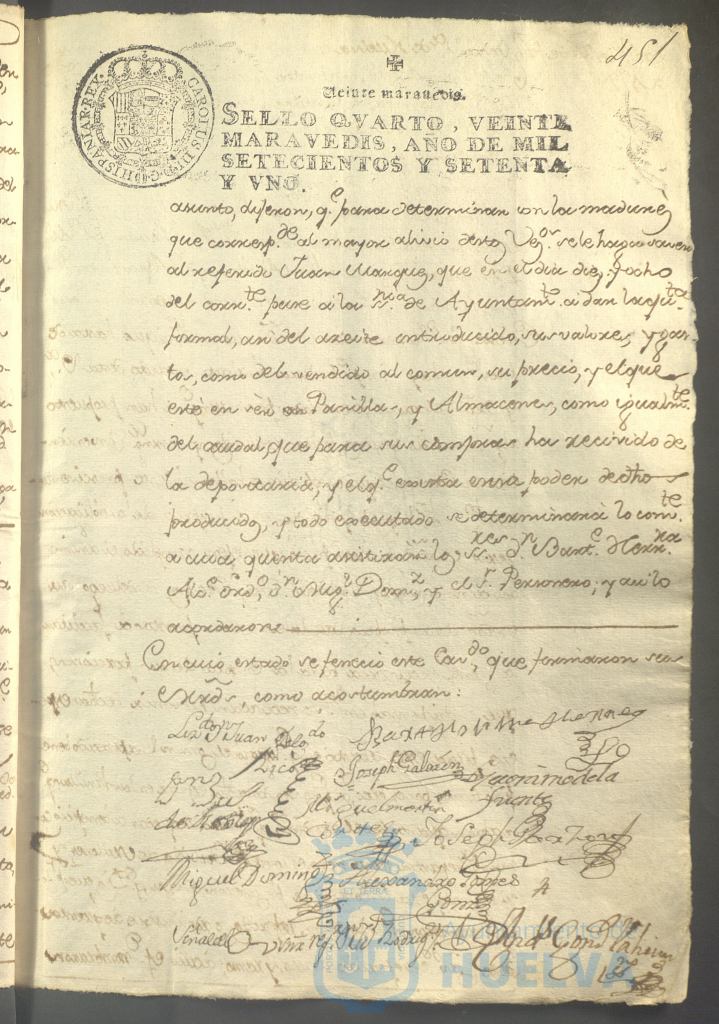 451
CAROLUS III D G HISPANIAR REX
Veinte maravedis.
SELLO QVARTO, VEINTE
MARAVEDIS, AÑO DE MIL
SETECIENTOS Y SETENTA
Y VNO.
asunto, dijeron, q.e para determinar con la madurez
que corresp.de al mayor alivio de esto Vez.os se le haga saver
al referido Juan Marquez, que en el dia diez y ocho
del corr.te pase a la de Ayuntam.to a dar la
formal, asi del azeite introducido, sus valores, y gas-
tos, como del vendido al comun, su precio, y el que
esté en ser en Panilla, y Almacenes, como igualm.te
del caudal, que para sus compras ha recivido de
la depositaria, y el q.e exista en su poder de dho
producido, y todo executado se determinará lo com.te
a cuia quenta asistiran los S.res d.n Bart.e Herr.ra
Alc.e ord.o d.n Mig.l Dom.z y el S.r Personero; y asi lo
acordaron
En cuio estado se fenecio este Cav.do que formaron sus
Mrds como acostumbran:
Liz.do Dn Juan
Bartholome Herrera
Joseph Galvan
Geronimo de la
Fuente
Miguel Martin
Joseph
Miguel Dominguez
Alexandro
Ayuntamiento de
HUELVA